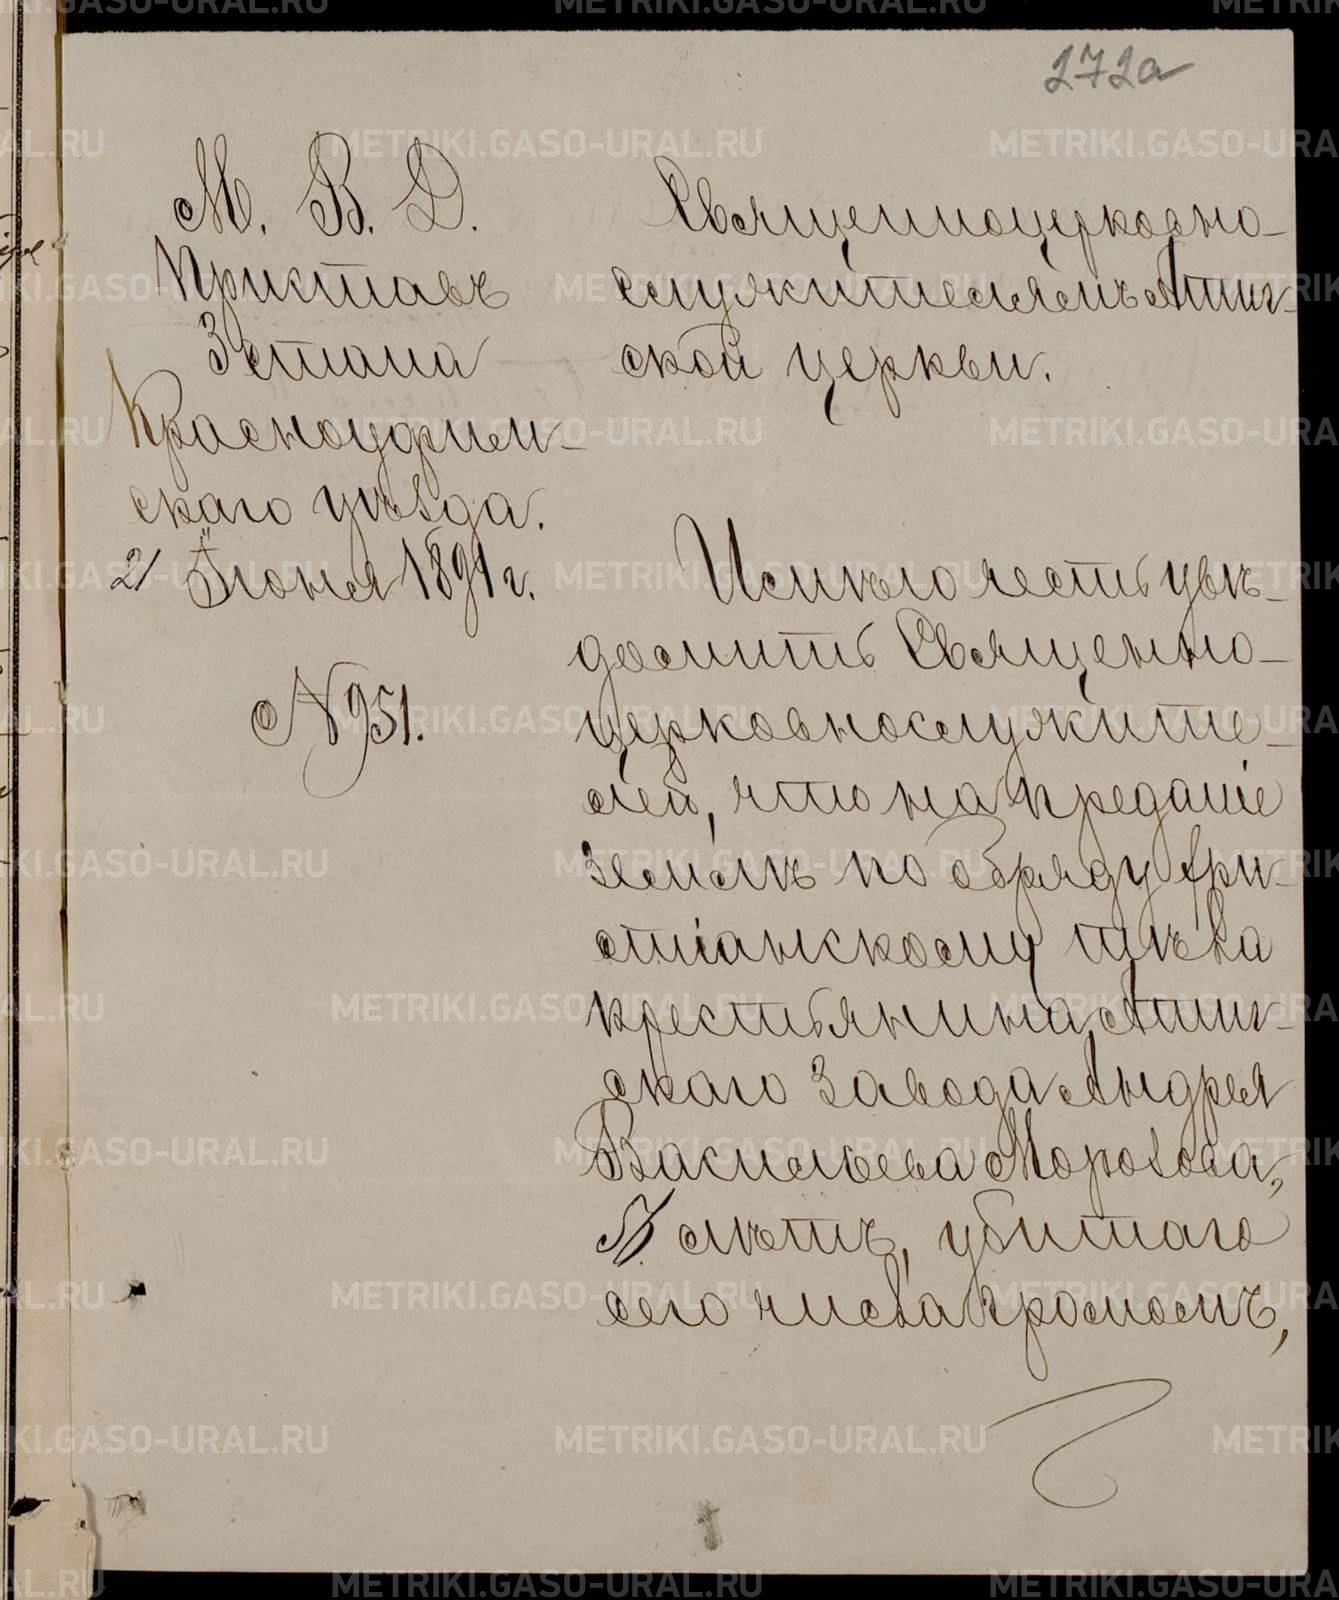 272а
М. В. Д.
Приставъ
3 стана
Красноуфим-
скаго уѣзда.
21 Іюня 1891 г.
№ 951.
Священноцерковно-
служителямъ Атиг-
ской церкви.
Имѣю честь увѣ-
домить Священно-
церковнослужите-
лей, что на преданіе
землѣ по обряду хри-
стіанскому тѣла
крестьянина Атиг-
скаго завода Андрея
Васильева Морозова,
лѣтъ, убитаго
сего числа громомъ,